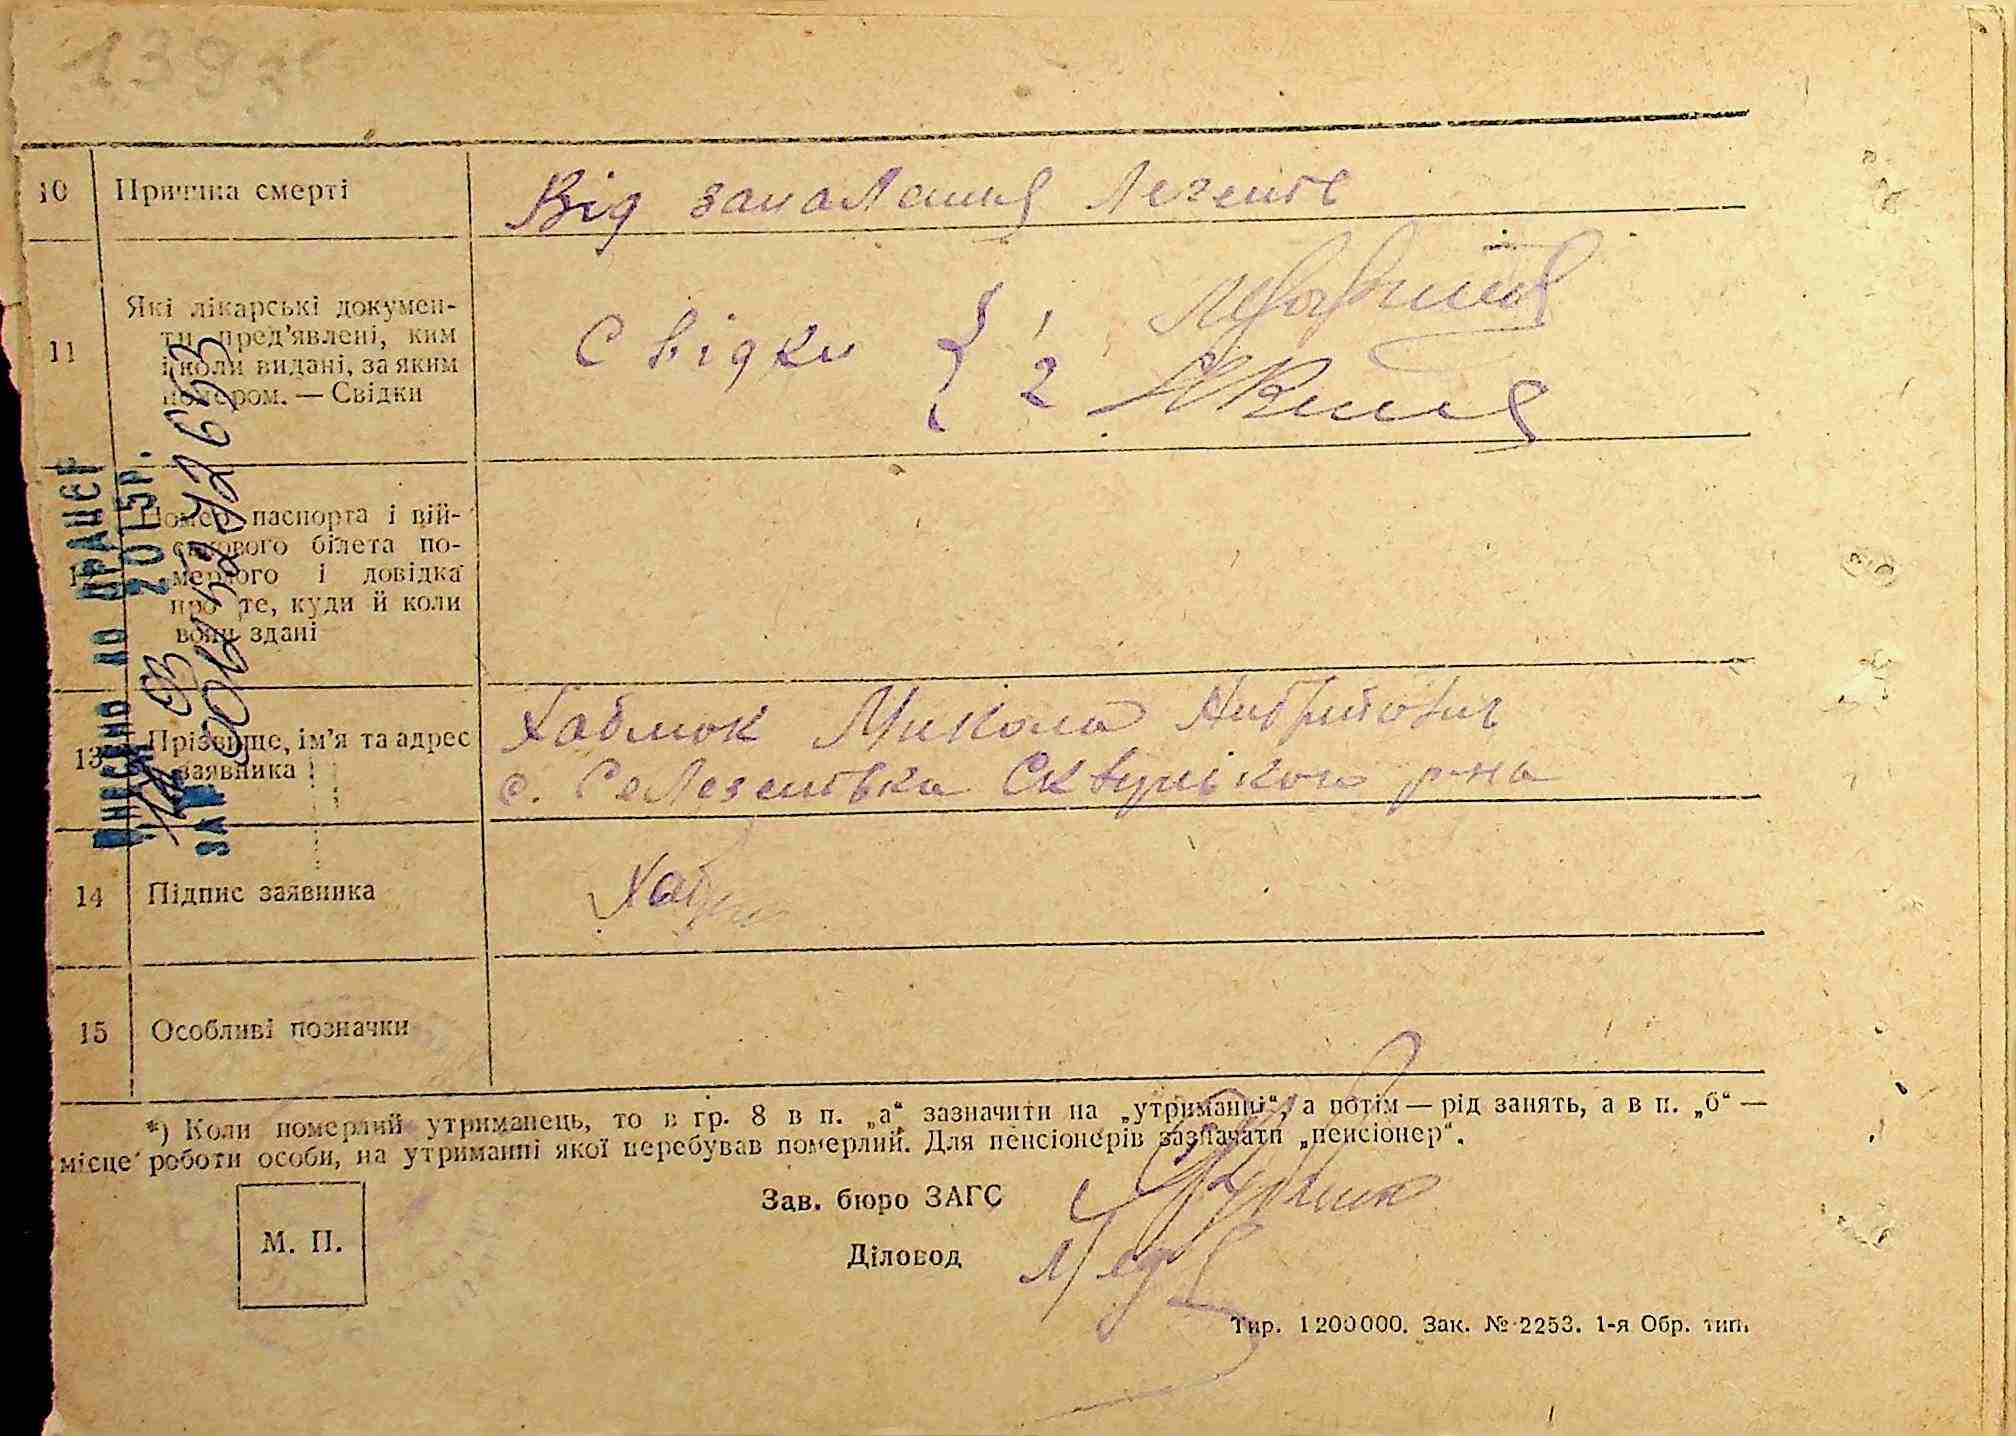 139
10 Причина смерті Від запалення легень
11 Які лікарські докумен-
ти пред'явлені, ким
і коли видані, за яким
номером. — Свідки
Свідки { 1
2
Номер паспорта і вій-
ськового білета по-
мерлого і довідка
про те, куди й коли
вони здані
13 Прізвище, ім'я та адрес
заявника
Хаблюк Микола
с. Селезенівка Сквирського р-на
14 Підпис заявника
15 Особливі позначки
*) Коли померлий утриманець, то в гр. 8 в п. „а“ зазначити на „утриманні“, а потім — рід занять, а в п. „б“ —
місце роботи особи, на утриманні якої перебував померлий. Для пенсіонерів зазначати „пенсіонер“.
М. П.
Зав. бюро ЗАГС
Діловод
Тир. 1200000. Зак. № 2253. 1-я Обр. тип.
ВНЕСЕНО ДО ДРАЦСГ
14 03 2015р.